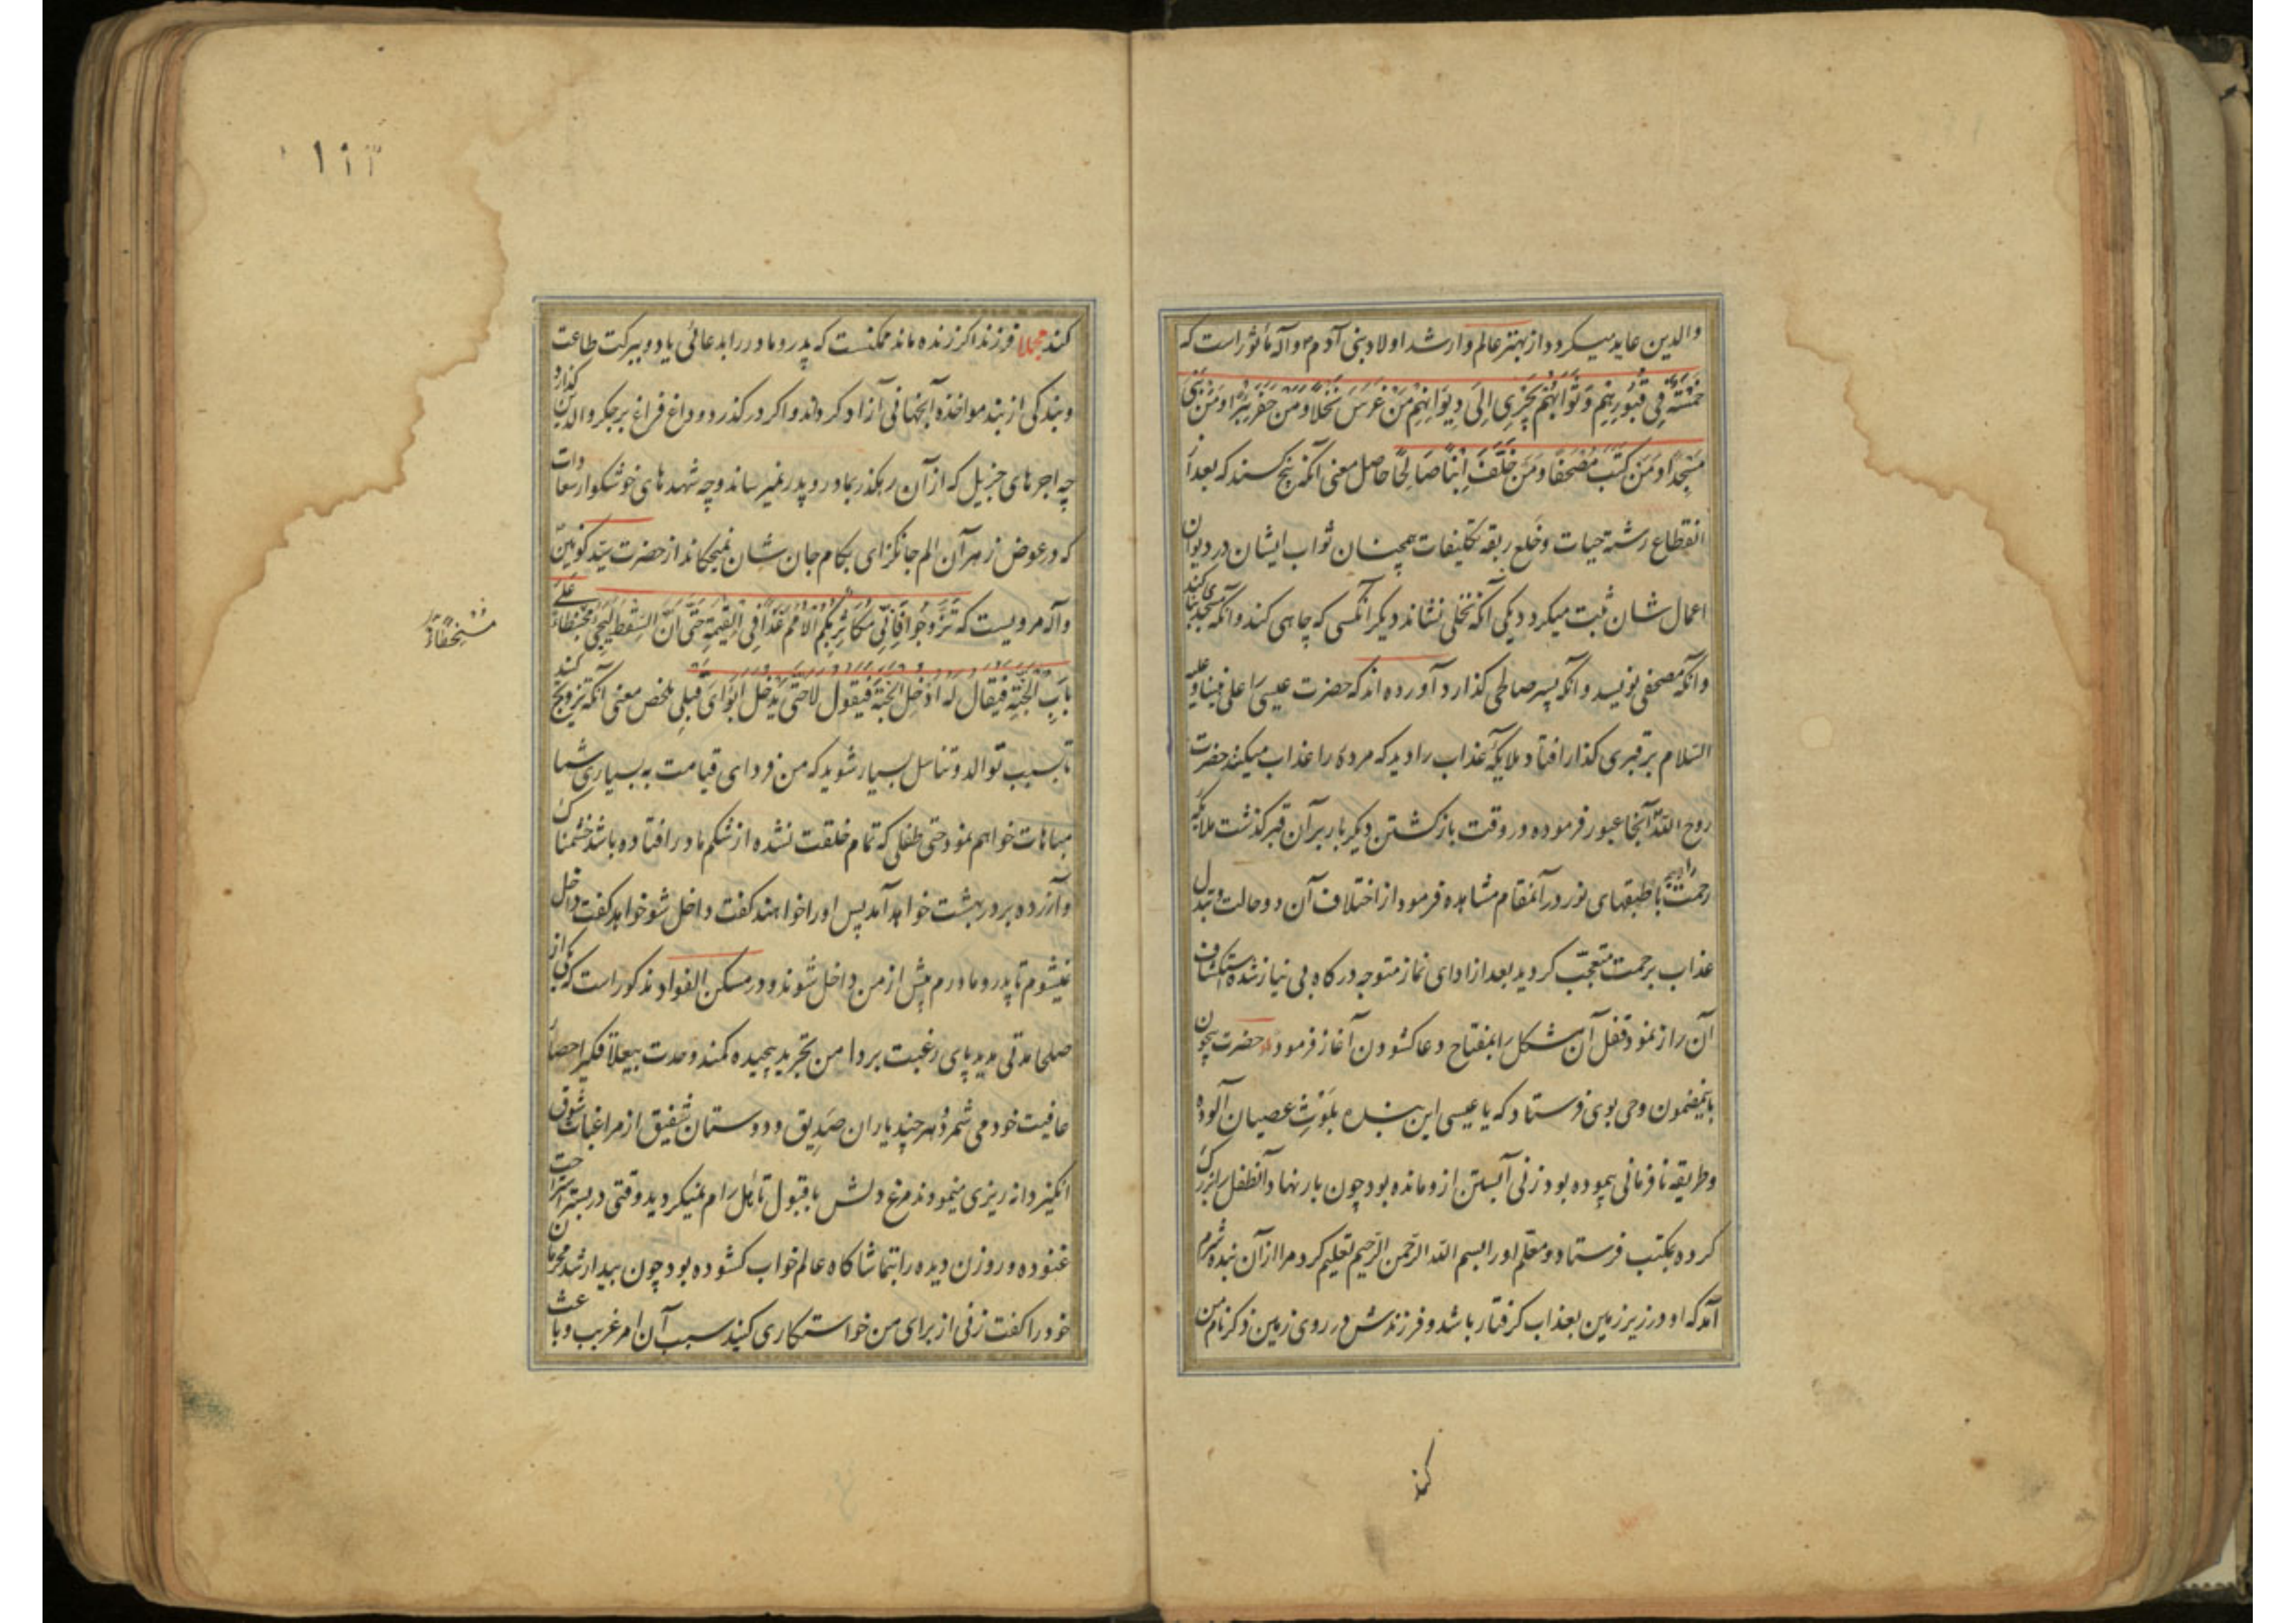 والدین عاید میکردد از بهتر عالم وارشد اولاد بنی آدم م و آله مأثور است که
خَمْسَةٌ فِی قُبُورِهِمْ وَثَوَابُهُمْ یَجْرِی اِلَی دِیوَانِهِمْ مَنْ غَرَسَ نَخْلًا وَمَنْ حَفَرَ بِئْرًا وَمَنْ بَنَی
مَسْجِدًا وَمَنْ کَتَبَ مُصْحَفًا وَمَنْ خَلَّفَ اِبْنًا صَالِحًا حاصل معنی آنکه پنج کسند که بعد از
انقطاع رشتهٔ حیات و خلع ربقه تکلیفات همچنان ثواب ایشان در دیوان
اعمال شان ثبت میکردد یکی آنکه نخلی نشاند دیکر آنکسی که چاهی کند و آنکه مسجد بنا کند
وآنکه مصحفی نویسد و آنکه پسر صالحی کذارد آورده اند که حضرت عیسی را علی نبینا و علیه
السّلام بر قبری کذار افتاد ملایکهٔ عذاب را دید که مرده را عذاب میکنند حضرت
روح الله از آنجا عبور فرموده در وقت بازکشتن دیکر بار بر آن قبر کذشت ملائکه
رحمت را دید با طبقهای نور در آنمقام مشاهده فرمود از اختلاف آن دو حالت و تبدل
عذاب برحمت متعجّب کردید بعد از ادای نماز متوجه درکاه بی نیاز شده استکشاف
آن راز نمود و قفل آن مشکل را بمفتاح دعا کشودن آغاز فرمود حضرت بیچون
باینمضمون وحی بوی فرستاد که یا عیسی این بنده بلوث عصیان آلوده
وطریقه نافرمانی پیموده بود زنی آبستن ازو مانده بود چون بار نهاد و آنطفل را بزرک
کرده بمکتب فرستاد و معلّم او را بسم الله الرّحمن الرّحیم تعلیم کرد مرا از آن بنده شرم
آمد که او در زیر زمین بعذاب کرفتار باشد و فرزندش در روی زمین ذکر نام من
کند
۱۱۲
کند مجملا فرزند اکر زنده ماند ممکنست که پدر و مادر را بدعائی یاد و ببرکت طاعت
وبندکی از بند مواخذه آنجهانی آزاد کرداند و اکر درکذرد و داغ فراغ بر جکر والدین کذارد
چه اجرهای جزیل که از آن رهکذر بمادر و پدر نمیرساند و چه شهدهای خوشکوار سعادات
که در عوض زهر آن الم جانکزای بکام جان شان نمیچکاند از حضرت سیّد کونین
وآله مرویست که تَزَوَّجُوا فَاِنِّی مُکَاثِرٌ بِکُمُ الْاُمَمَ غَدًا فِی الْقِیمَةِ حَتَّی اَنَّ السِّقْطَ لَیَجِیءُ مُحْبَنْطِئًا عَلَی
بَابِ الْجَنَّةِ فَیُقَالُ لَهُ ادْخُلِ الْجَنَّةَ فَیَقُولُ لَا حَتَّی یَدْخُلَ اَبَوَایَ قَبْلِی ملخص معنی آنکه تزویج کنید
تا بسبب توالد و تناسل بسیار شوید که من فردای قیامت به بسیاری شما
مباهات خواهم نمود حتی طفلی که تمام خلقت نشده از شکم مادر افتاده باشد خشمناک
وآزرده بر در بهشت خواهد آمد پس او را خواهند کفت داخل شو خواهد کفت داخل
نمیشوم تا پدر و مادرم پیش از من داخل شوند و در مسکن الفواد مذکور است که یکی از
صلحا مدتی مدید پای رغبت بردامن تجرید پیچیده کمند وحدت
عافیت خود می شمرد هر چند یاران صَدِیق و دوستان شفیق از مراغبات شوق
انکیز دانه ریزی مینمودند مرغ دلش باقبول تأهل رام نمیکردید وقتی در بستر استراحت
غنوده و روزن دیده را بتماشاکاه عالم خواب کشوده بود چون بیدار شد محرمان
خود را کفت زنی از برای من خواستکاری کنید سبب آن امر غریب و باعث